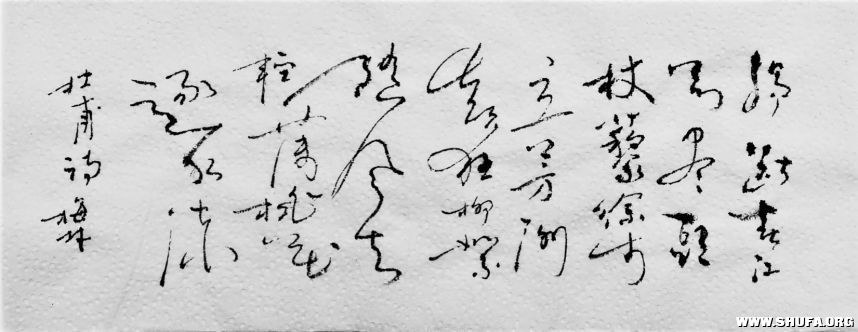 腸断春江
欲尽頭
杖藜徐步
立芳洲
顛狂柳絮
随風去
軽薄桃花
逐水流
杜甫诗 梅林
WWW.SHUFA.ORG